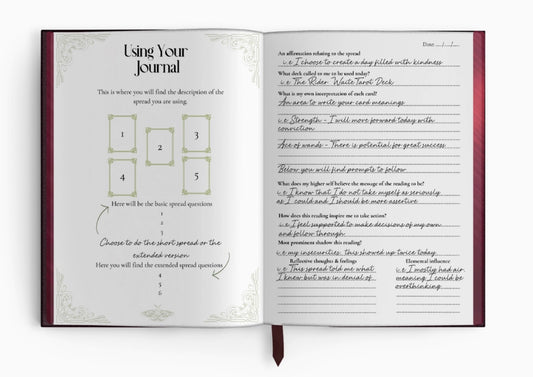 Using Your
Journal
This is where you will find the description of the
spread you are using.
1
2
3
4
5
Here will be the basic spread questions
1
2
3
Choose to do the short spread or the
extended version
Here you will find the extended spread questions
4
5
6
Date: __/__/__
An affirmation relating to the spread
i.e I choose to create a day filled with kindness
What deck called to me to be used today?
i.e The Rider Waite Tarot Deck
What is my own interpretation of each card?
An area to write your card meanings
i.e Strength - I will more forward today with
conviction
Ace of wands - There is potential for great success
Below you will find prompts to follow
What does my higher self believe the message of the reading to be?
i.e I know that I do not take myself as seriously
as I could and I should be more assertive
How does this reading inspire me to take action?
i.e I feel supported to make decisions of my own
and follow through
Most prominent shadow this reading?
i.e my insecurities: this showed up twice today
Reflective thoughts & feelings
i.e This spread told me what
I knew but was in denial of
Elemental influence
i.e I mostly had air
meaning I could be
overthinking